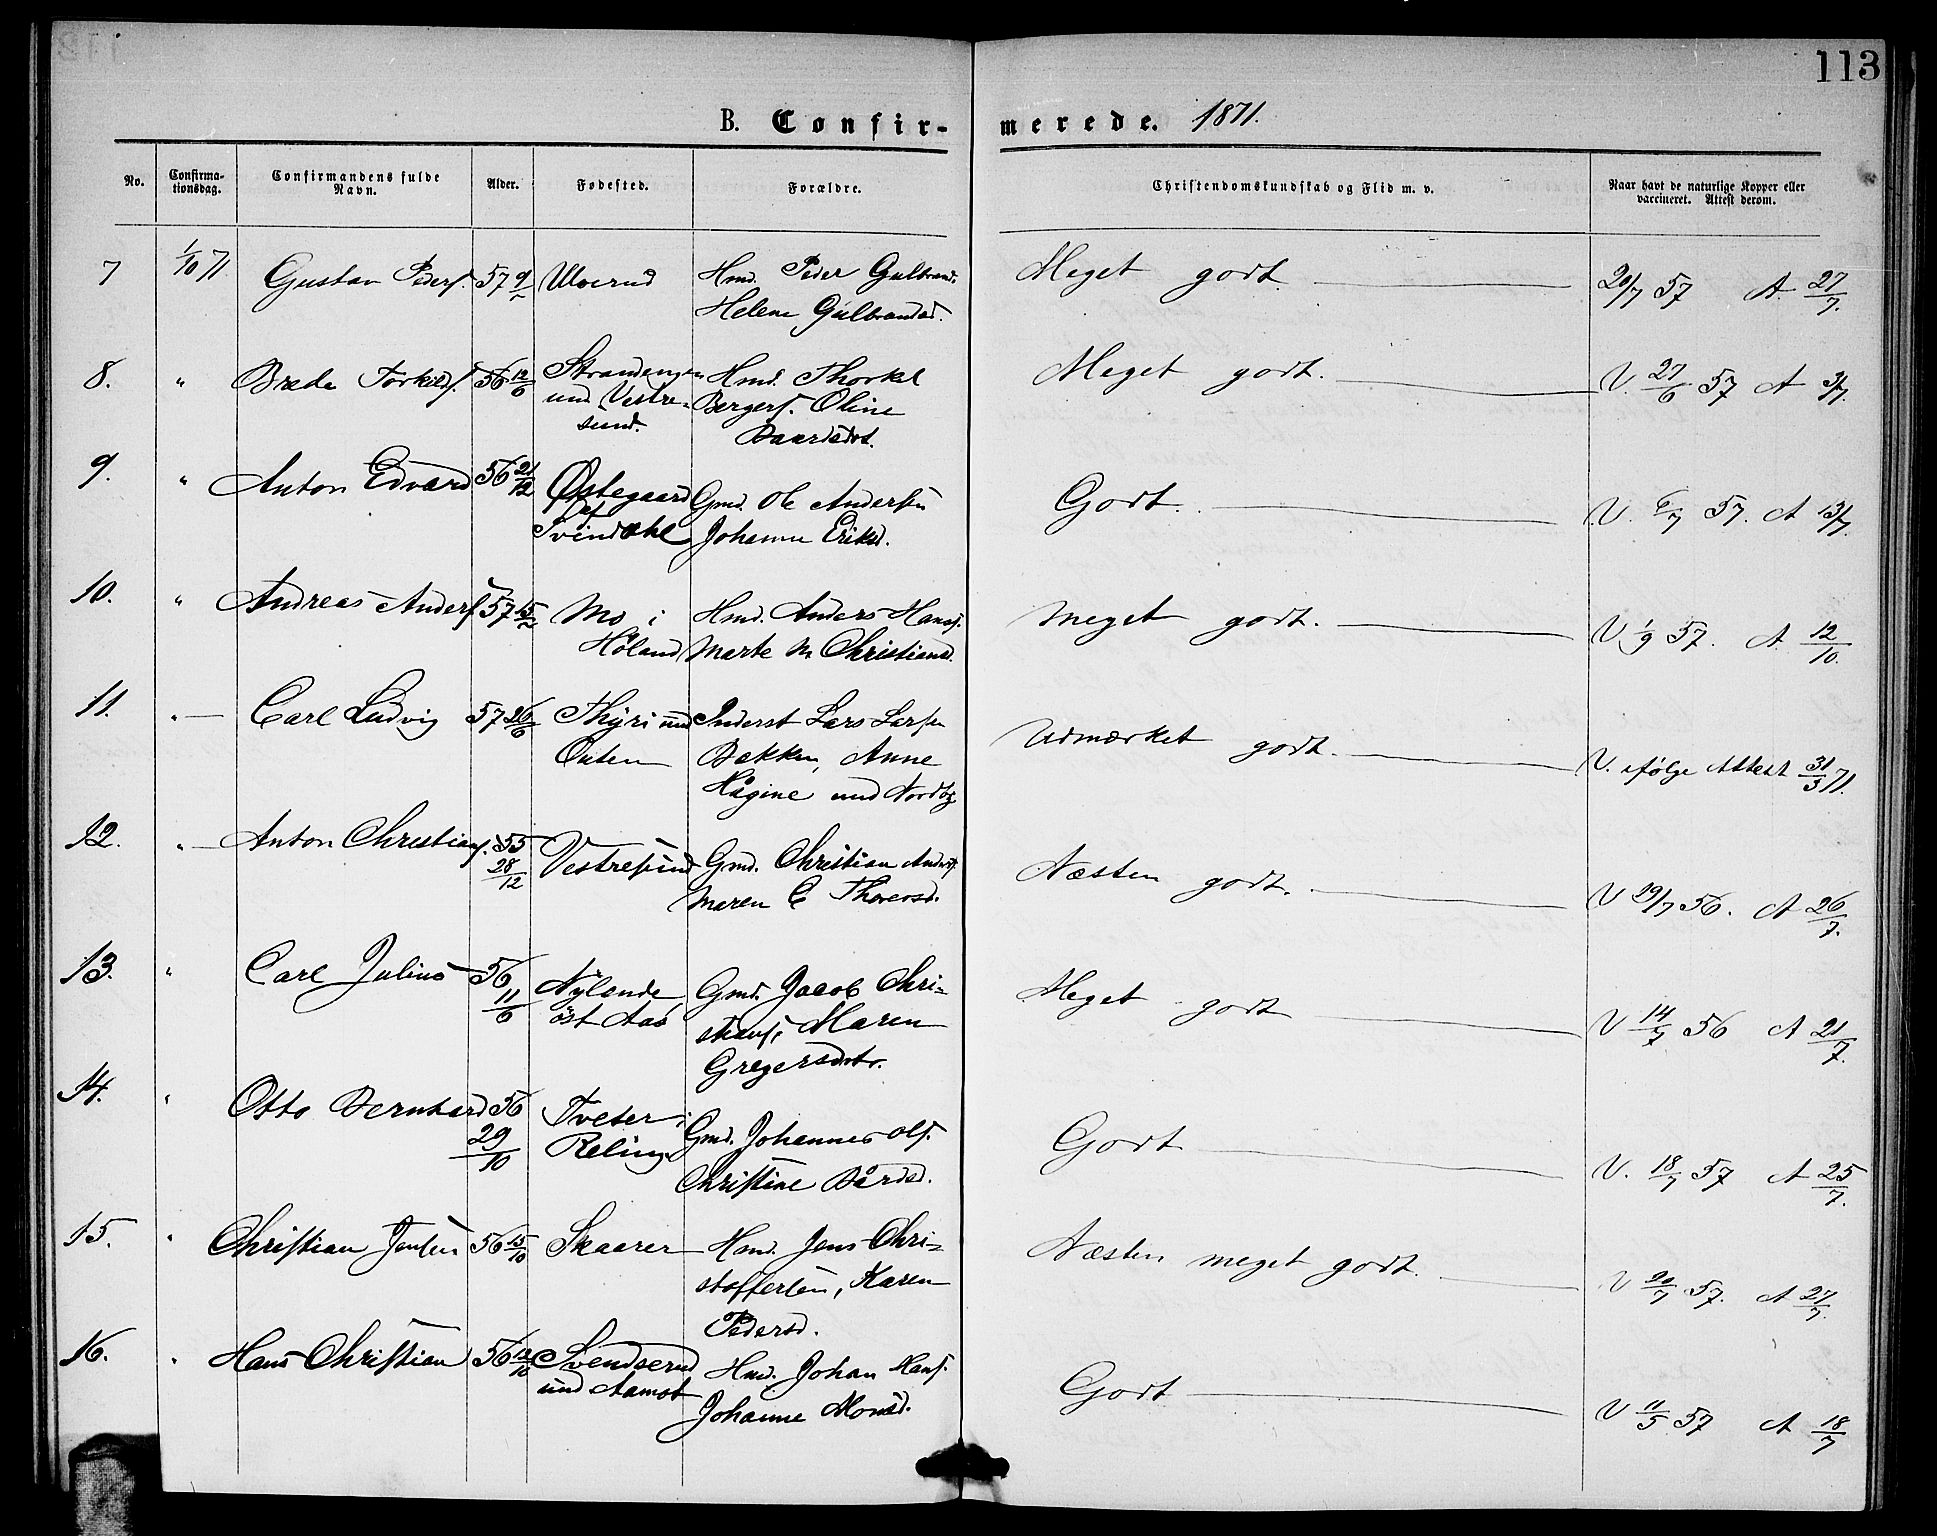 113
B. Confirmerede. 1871.
No. Confirmationsdag. Confirmandens fulde Navn. Alder. Fødested. Forældre. Christendomskundskab og Flid m. v. Naar havt de naturlige Kopper eller vaccineret. Attest derom.
7 1/10 71. Gustav Peders. 57 Ulverud Hmd. Peder Gulbrand. Meget godt. 20/7 57 A. 27/7.
Helene Gulbrandsd.
8. " Brede Torkilds. 56 12/6 Strandengen Hmd. Thorkel Meget godt. V. 27/6 57 A 3/7.
und Vestre- Bergers. Oline
sund. Baardsdt.
9. " Anton Edvard 56 21/12 Østegaard Gmd. Ole Andersen Godt. V. 6/7 57. A 13/7.
af
Svindahl Johanne Eriksd.
10. " Andreas Anders. 57 Mo i Hmd. Anders Hans. meget godt. V 1/9 57. A. 12/10.
Høland Marte M Christiansd.
11. " Carl Ludvig 57 26/6 Thyri und Inderst Lars Larsen Udmærket godt. V. ifølge Attest 31/3 71.
Outen Bekken, Anne
Hågine und Nordby
12. " Anton Christians. 55 28/12 Vestresund Gmd. Christian Anders. Næsten godt. V 19/7 56. A 26/7.
Maren C Thoresd.
13. " Carl Julius 56 11/6 Nylende Gmd. Jacob Chri- Meget godt V 14/7 56 A 21/7.
øst Aas stians, Maren
Gregersdtr.
14. " Otto Bernhard 56 29/10 Tveter i Gmd. Johannes Ols. Godt V. 18/7 57 A 25/7.
Reling Christine Bårdsd.
15. " Christian Jensen 56 15/10 Skaarer Hmd. Jens Chri- Næsten meget godt. V 20/7 57. A 27/7.
stoffersen, Karen
Pedersd.
16. " Hans Christian 56 Svendserud Hmd. Johan Hans. Godt V 11/5 57 A 18/7
und Aamot Johanne Monsd.